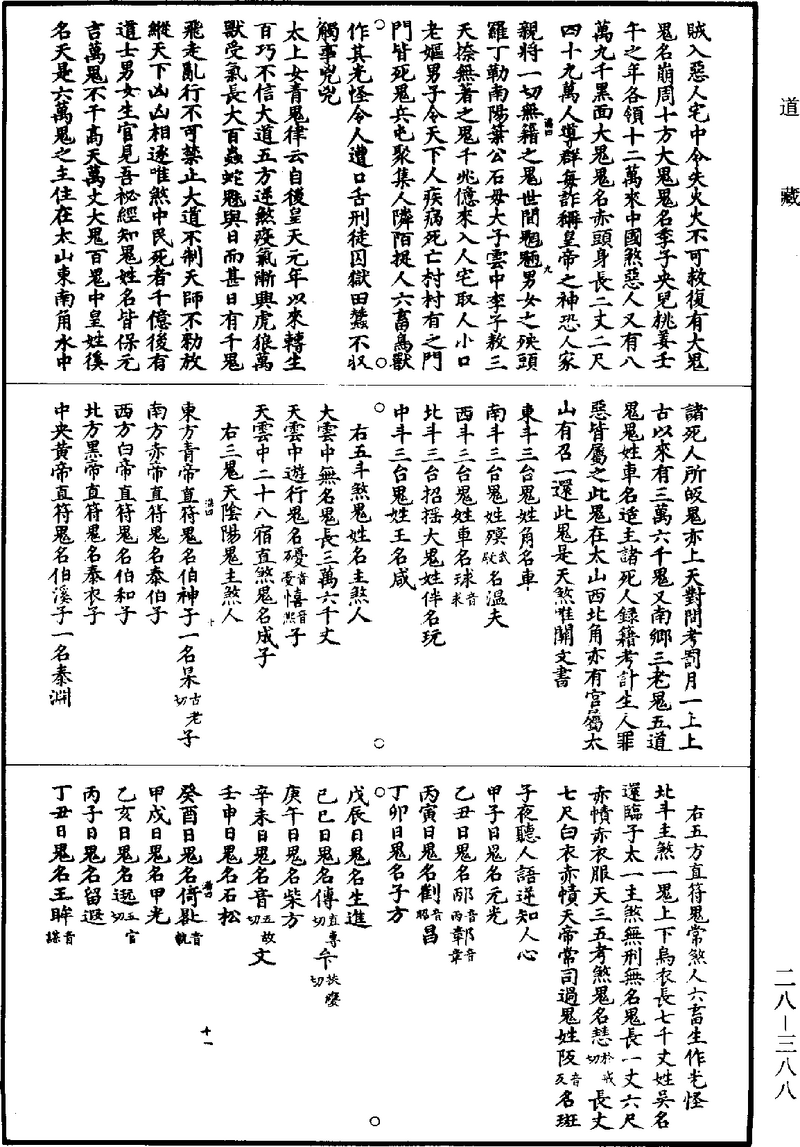 道藏
賊入惡人宅中令失火火不可救復有大鬼
鬼名崩周十方大鬼鬼名李子央兒桃姜壬
午之年各領十二萬來中國煞惡人又有八
萬九千黑面大鬼鬼名赤頭身長二丈二尺
四十九萬人導群每詐稱皇帝之神恐人家
親將一切無籍之鬼世間魍魎男女之殃頭
羅丁勒南陽葉公石母大子雲中李子敖三
天捺無著之鬼千兆億來入人宅取人小口
老嫗男子令天下人疾病死亡村村有之門
門皆死鬼兵屯聚集人隣陌捉人六畜鳥獸
作其光怪令人遭口舌刑徒囚獄田蠶不収
觸事兇兇
太上女青鬼律云自後皇天元年以來轉生
百巧不信大道五方逆煞疫氣漸興虎狼萬
獸受氣長大百蟲蛇魅與日而甚日有千鬼
飛走亂行不可禁止大道不制天師不勑放
縱天下凶凶相逐唯煞中民死者千億後有
道士男女生官見吾祕經知鬼姓名皆保元
吉萬鬼不干高天萬丈大鬼百鬼中皇姓徯
名天是六萬鬼之主住在太山東南角水中
諸死人所皈鬼亦上天對問考罰月一上上
古以來有三萬六千鬼又南鄉三老鬼五道
鬼鬼姓車名适主諸死人録籍考計生人罪
惡皆屬之此鬼在太山西北角亦有宮屬太
山有召一還此鬼是天煞唯關文書
東斗三台鬼姓角名車
南斗三台鬼姓殟名溫夫
西斗三台鬼姓車名球音求
北斗三台招搖大鬼姓伴名玩
中斗三台鬼姓王名咸
右五斗煞鬼姓名主煞人
大雲中無名鬼長三萬六千丈
天雲中遊行鬼名𥖼音憂憘音熈子
天雲中二十八宿直煞鬼名成子
右三鬼天陰陽鬼主煞人
東方青帝直符鬼名伯神子一名杲古老切子
南方赤帝直符鬼名泰伯子
西方白帝直符鬼名伯和子
北方黑帝直符鬼名泰衣子
中央黄帝直符鬼名伯溪子一名泰淵
右五方直符鬼常煞人六畜生作光怪
北斗主煞一鬼上下烏衣長七千丈姓吳名
還臨子太一主煞無刑無名鬼長一丈六尺
赤幘赤衣服天三五考煞鬼名慧於戒切長丈
七尺白衣赤幘天帝常司過鬼姓阪音反名斑
子夜聽人語逆知人心
甲子日鬼名元光
乙丑日鬼名邴音丙鄣音章
丙寅日鬼名劉音昭昌
丁卯日鬼名子方
戊辰日鬼名生進
己巳日鬼名傳直專切卞扶變切
庚午日鬼名柴方
辛未日鬼名音五故切文
壬申日鬼名石松
癸酉日鬼名倚匙音軌
甲戌日鬼名甲光
乙亥日鬼名逭五官切
丙子日鬼名留遐
丁丑日鬼名王眸音謀
十一
二八—三八八